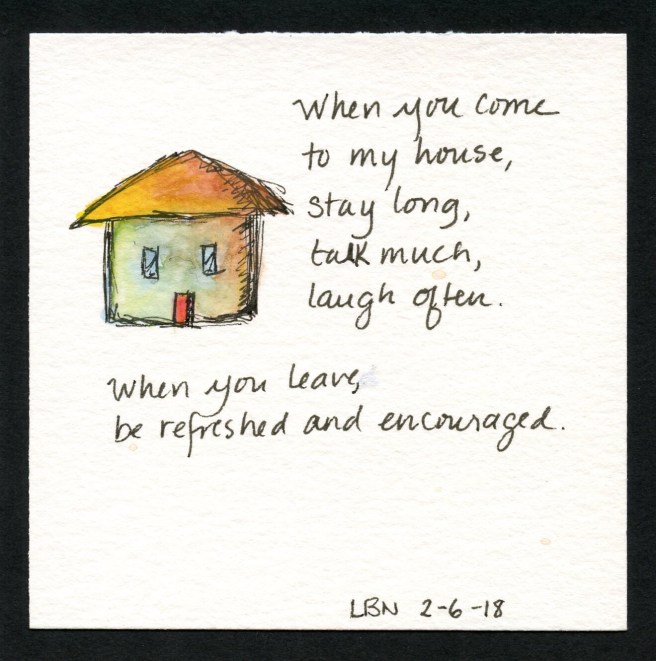 When you come
to my house,
stay long,
talk much,
laugh often.
When you leave,
be refreshed and encouraged.
LBN 2-6-18